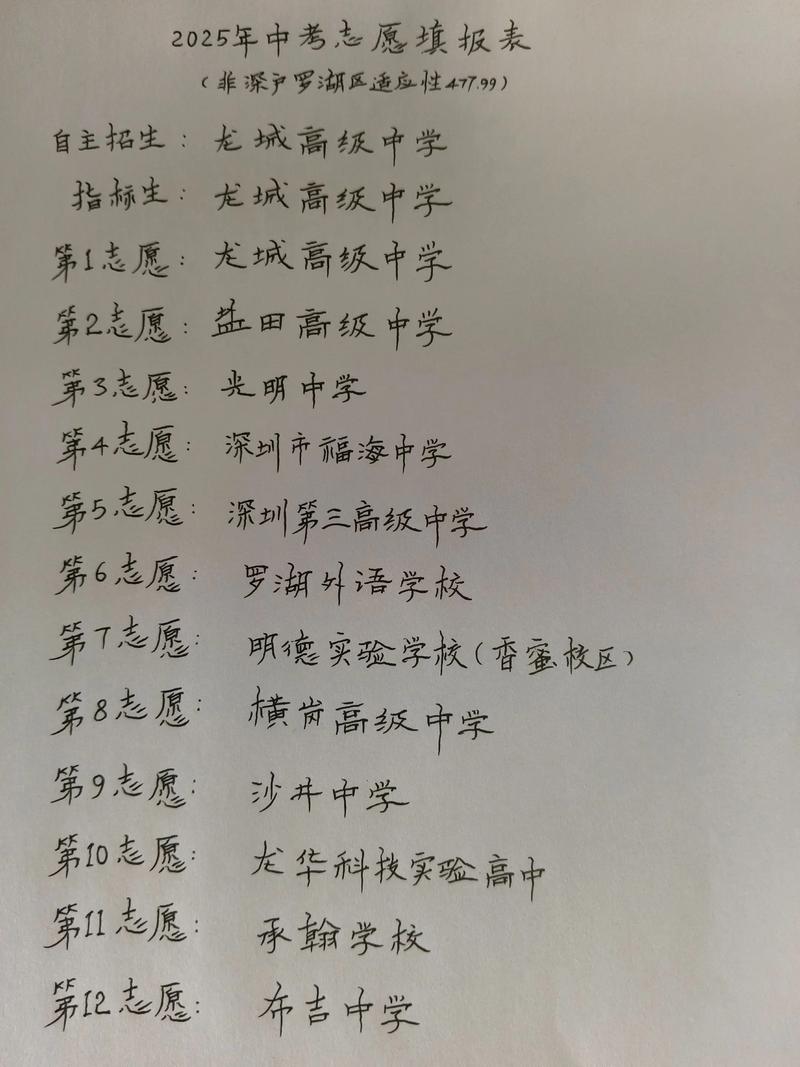 2025年中考志愿填报表
(非深户罗湖区适应性477.99)
自主招生：龙城高级中学
指标生：龙城高级中学
第1志愿：龙城高级中学
第2志愿：盐田高级中学
第3志愿：光明中学
第4志愿：深圳市福海中学
第5志愿：深圳第三高级中学
第6志愿：罗湖外语学校
第7志愿：明德实验学校(香蜜校区)
第8志愿：横岗高级中学
第9志愿：沙井中学
第10志愿：龙华科技实验高中
第11志愿：承翰学校
第12志愿：布吉中学